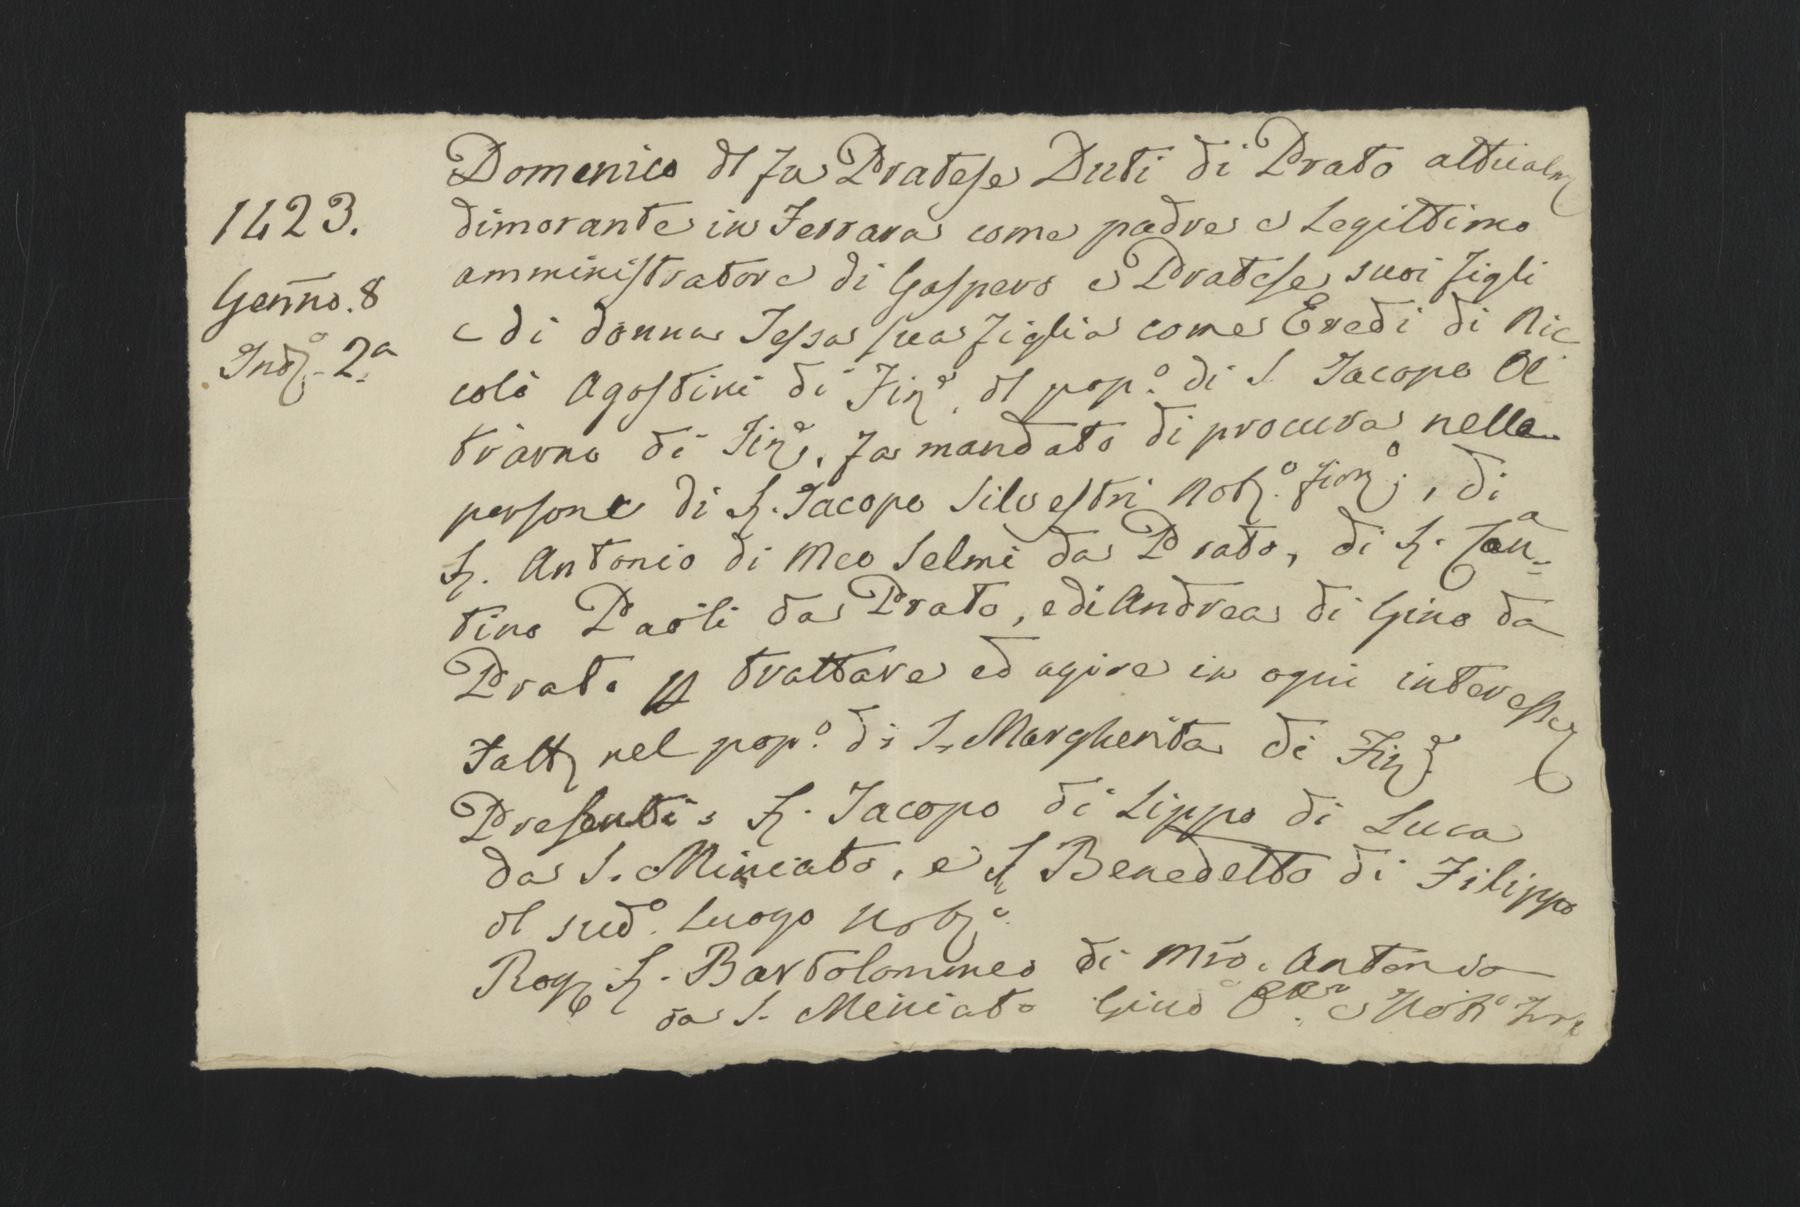 1423.
Genno. 8
Indᵒ. 2ᵃ
Domenico dl fu Pratese Duti di Prato attualm
dimorante in Ferrara come padre e Legittimo
amministratore di Gaspero e Pratese suoi figli
e di donna Tessa sua figlia come Eredi di Nic
colò Agostini di Firᵉ. dl popᵒ. di S. Jacopo Ol
trarno di Firᵉ. fa mandato di procura nelle
persone di S. Jacopo Silvestri Notᵒ. Fiorᵒ., di
S. Antonio di Meo Selmi da Prato, di S.
tino Paoli da Prato, e di Andrea di Gino da
Prato p trattare ed agire in ogni interesse
Fatt nel popᵒ. di S. Margherita di Firᵉ.
Presenti: S. Jacopo di Lippo di Luca
da S. Miniato, e S Benedetto di Filippo
dl sudᵒ. Luogo Notⁱ.
Rog S. Bartolommeo di Mrõ. Antonio
da S. Miniato Giudᵉ e Notᵒ